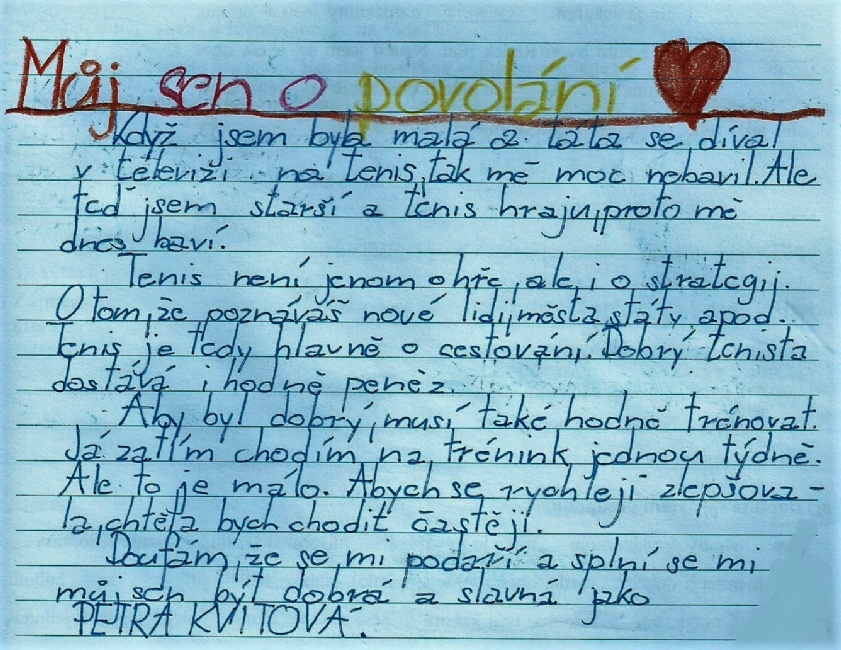 Můj sen o povolání
Když jsem byla malá a táta se díval
v televizi na tenis, tak mě moc nebavil. Ale
teď jsem starší a tenis hraju, proto mě
dnes baví.
Tenis není jenom o hře, ale i o strategii.
O tom, že poznáváš nové lidi, města, státy apod.
Tenis je tedy hlavně o cestování. Dobrý tenista
dostává i hodně peněz.
Aby byl dobrý, musí také hodně trénovat.
Já zatím chodím na trénink jednou týdně.
Ale to je málo. Abych se rychleji zlepšova-
la, chtěla bych chodit častěji.
Doufám, že se mi podaří a splní se mi
můj sen být dobrá a slavná jako
PETRA KVITOVÁ.